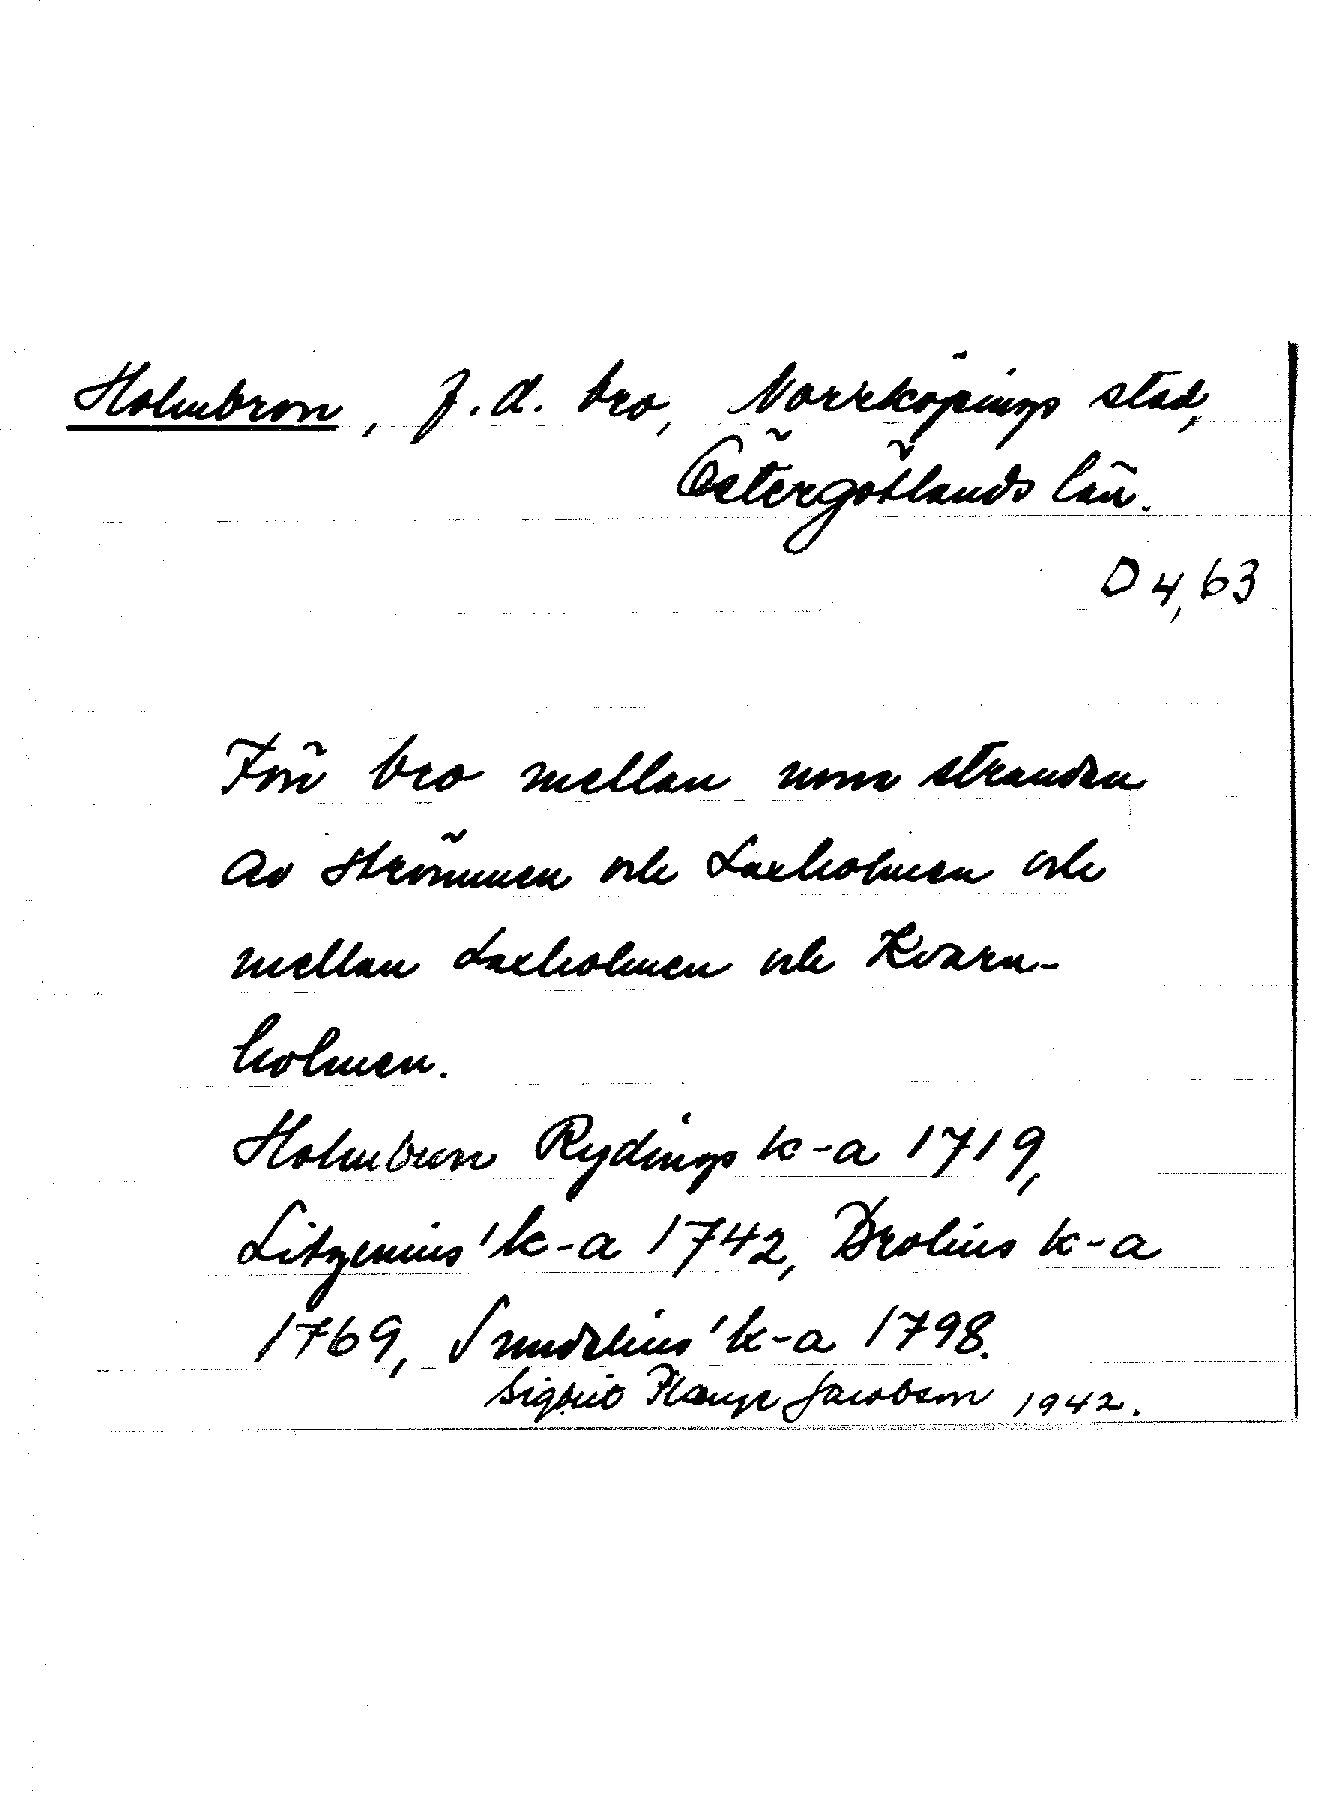 Holmbron, f.d. bro, Norrköpings stad,
Östergötlands län.
D 4,63
Förr bro mellan norra stranden
av Strömmen och Laxholmen och
mellan Laxholmen och Kvarn-
holmen.
Holmbron Rydings k-a 1719,
Litzenius' k-a 1742, Brolins k-a
1769, Sundelius' k-a 1798.
Sigrid Flange Jacobson 1942.